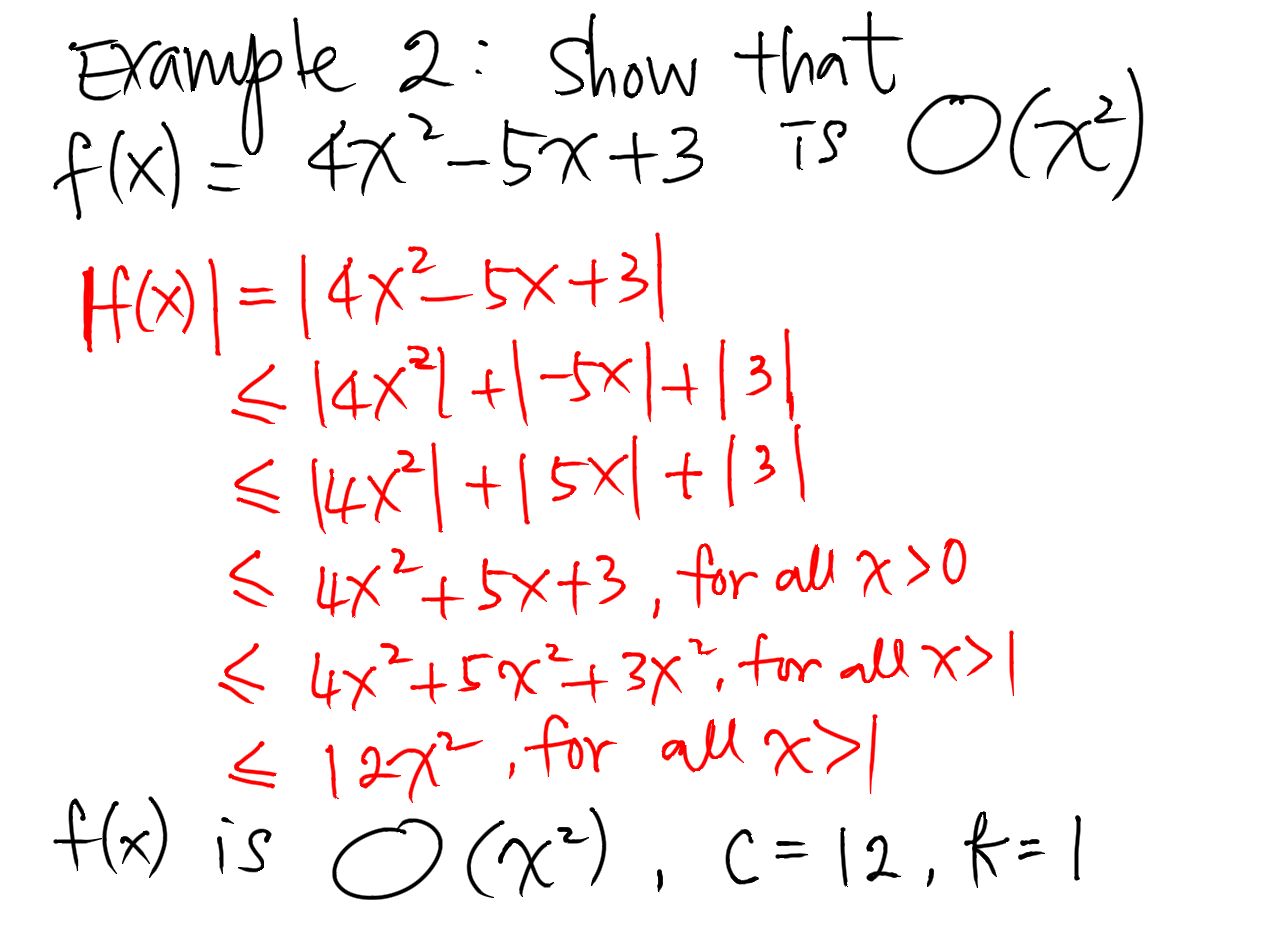 Example 2: Show that
f(x) = 4x² - 5x + 3 is O(x²)
|f(x)| = |4x² - 5x + 3|
≤ |4x²| + |-5x| + |3|
≤ |4x²| + |5x| + |3|
≤ 4x² + 5x + 3, for all x > 0
≤ 4x² + 5x² + 3x², for all x > 1
≤ 12x², for all x > 1
f(x) is O(x²), C = 12, k = 1